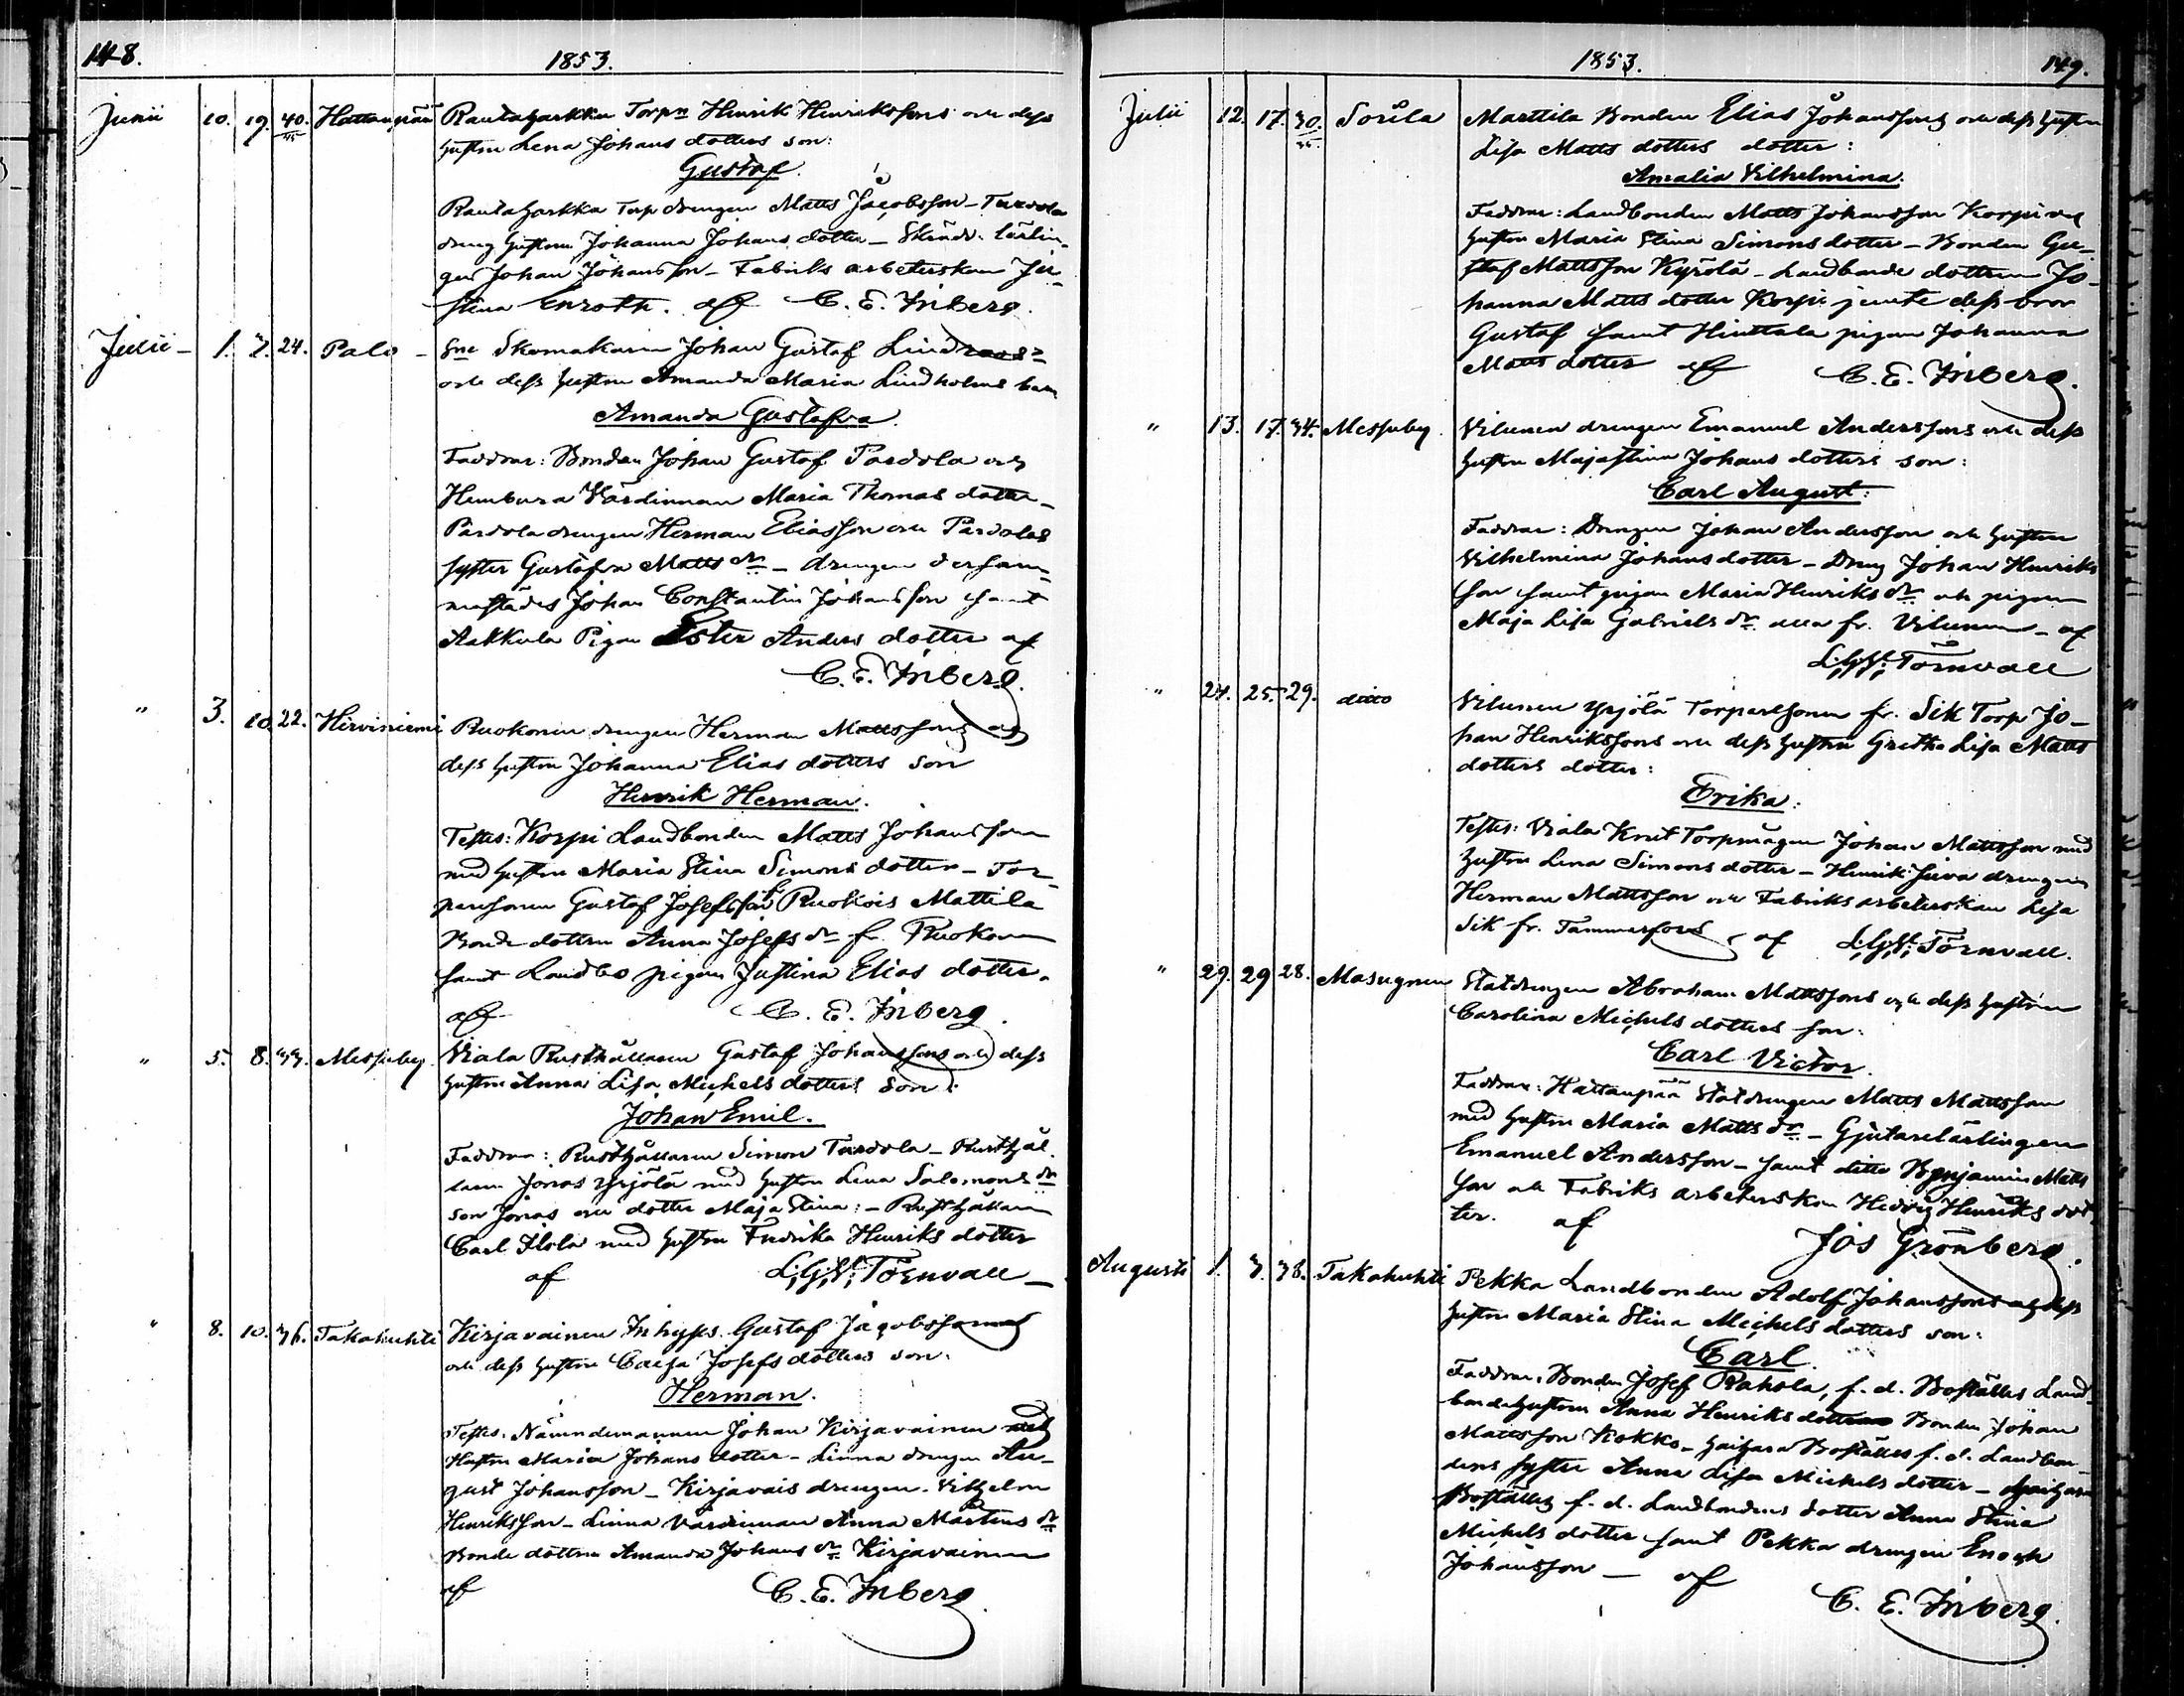 148. 1853.
Junii 10. 19. 40. Hattanpää Rautaharkka Torpn Henrik Henrikssons och dess
hustru Lena Johans dotters son:
Gustaf.
Rautaharkka Torp drengen Matts Jacobsson - Turvola
dreng hustrun Johanna Johans dotter - Skrädd. lärlin-
gen Johan Johansson - Fabriks arbeterskan Ju-
stina Enroth. af C. E. Inberg.
Julii - 1. 3. 24. Palo - Sne Skomakarn Johan Gustaf
och dess hustru Amanda Maria Lindholms barn
Amanda Gustafva.
Faddrar: Bonden Johan Gustaf Pardola och
Värdinnan Maria Thomas dotter -
Pärdola drengen Herman Eliasson och Pärdolas
syster Gustafva Matts dr - drengen dersam-
mastädes Johan Constantin Johansson samt
Aakkula Pigan Ester Anders dotter af
C. E. Inberg.
" 3. 10. 22. Hirviniemi Ruokonen drengen Herman Mattssons och
dess hustru Johanna Elias dotters son
Henrik Herman.
Testes: Korpi Landbonden Matts Johansson
med hustru Maria Stina Simons dotter - Tor-
paresonen Gustaf Josefsson Ruokois Mattila
Bonde dottren Anna Josefs dr fr. Ruokonen
samt Landbo pigan Justina Elias dotter.
af C. E. Inberg.
" 5. 8. 33. Messuby Viala Rusthållaren Gustaf Johanssons och dess
hustru Anna Lisa Michels dotters son:
Johan Emil.
Faddrar: Rusthållaren Simon Turvola - Rusthål-
laren Jonas Yrjölä med hustru Lena Salomons dr
son Jonas och dotter Maja Stina: - Rusthållaren
Carl Ilola med hustru Fredrika Henriks dotter
af L:G:V: Törnvall -
" 8. 10. 36. Takahuhti Kirjavainen Inhyses Gustaf Jacobssons
och dess hustru Caisa Josefs dotters son:
Herman.
Testes: Nämndemannen Johan Kirjavainen med
Hustru Maria Johans dotter - Linna drengen Au-
gust Johansson - Kirjavais drengen Vilhelm
Henriksson - Linna Värdinnan Anna Mårtens dr
Bonde dottren Amanda Johans dr Kirjavainen
af C. E. Inberg.
1853. 149.
Julii 12. 17. 30. Sorila Marttila Bonden Elias Johanssons och dess hustru
Lisa Matts dotters dotter:
Amalia Vilhelmina.
Faddrar: Landbonden Matts Johansson Korpi och
hustru Maria Stina Simons dotter - Bonden Gu-
staf Mattsson Kyrölä - Landbonde dottren Jo-
hanna Matts dotter Korpi jemte dess bror
Gustaf samt Hinttala pigan Johanna
Matts dotter af C. E. Inberg.
" 13. 17. 34. Messuby. Vilunen drengen Emanuel Anderssons och dess
hustru Majastina Johans dotters son:
Carl August:
Faddrar: Drengen Johan Andersson och hustrun
Vilhelmina Johans dotter - Dreng Johan Henriks
son samt pigan Maria Henriks dr och pigan
Maja Lisa Gabriels dr alla fr. Vilunen - af
L:G:V: Törnvall
" 24. 25. 29. ditto Vilunen Yrjölä Torparesonen fr. Sik Torp Jo-
han Henrikssons och dess hustru Gretha Lisa Matts
dotters dotter:
Erika:
Testes: Viala Knut Torpmågen Johan Mattsson med
hustru Lena Simons dotter - Henrik Juva drengen
Herman Mattsson och Fabriks arbeterskan Lisa
Sik fr. Tammerfors af L:G:V: Törnvall.
" 29. 29 28. Masugnen Statdrengen Abraham Mattssons och dess hustru
Carolina Michels dotters son:
Carl Victor.
Faddrar: Hattanpää Statdrengen Matts Mattsson
med hustru Maria Matts dr - Gjutarelärlingen
Emanuel Andersson - samt ditto Benjamin Matts
son och Fabriks arbeterskan Hedvig Henriks dot-
ter. af Jos Grönberg.
Augusti 1. 3. 38. Takahuhti Pekka Landbonden Adolf Johanssons och dess
hustru Maria Stina Michels dotters son:
Carl.
Faddrar: Bonden Josef Rahola, f. d. Boställes Land-
bonde hustrun Anna Henriks dotter Bonden Johan
Mattsson Kokko - Haihara Boställes f. d. Landbon-
dens syster Anna Lisa Michels dotter - Haihara
Boställes f. d. Landbondens dotter Anna Stina
Michels dotter samt Pekka drengen Enoch
Johansson - af C. E. Inberg.